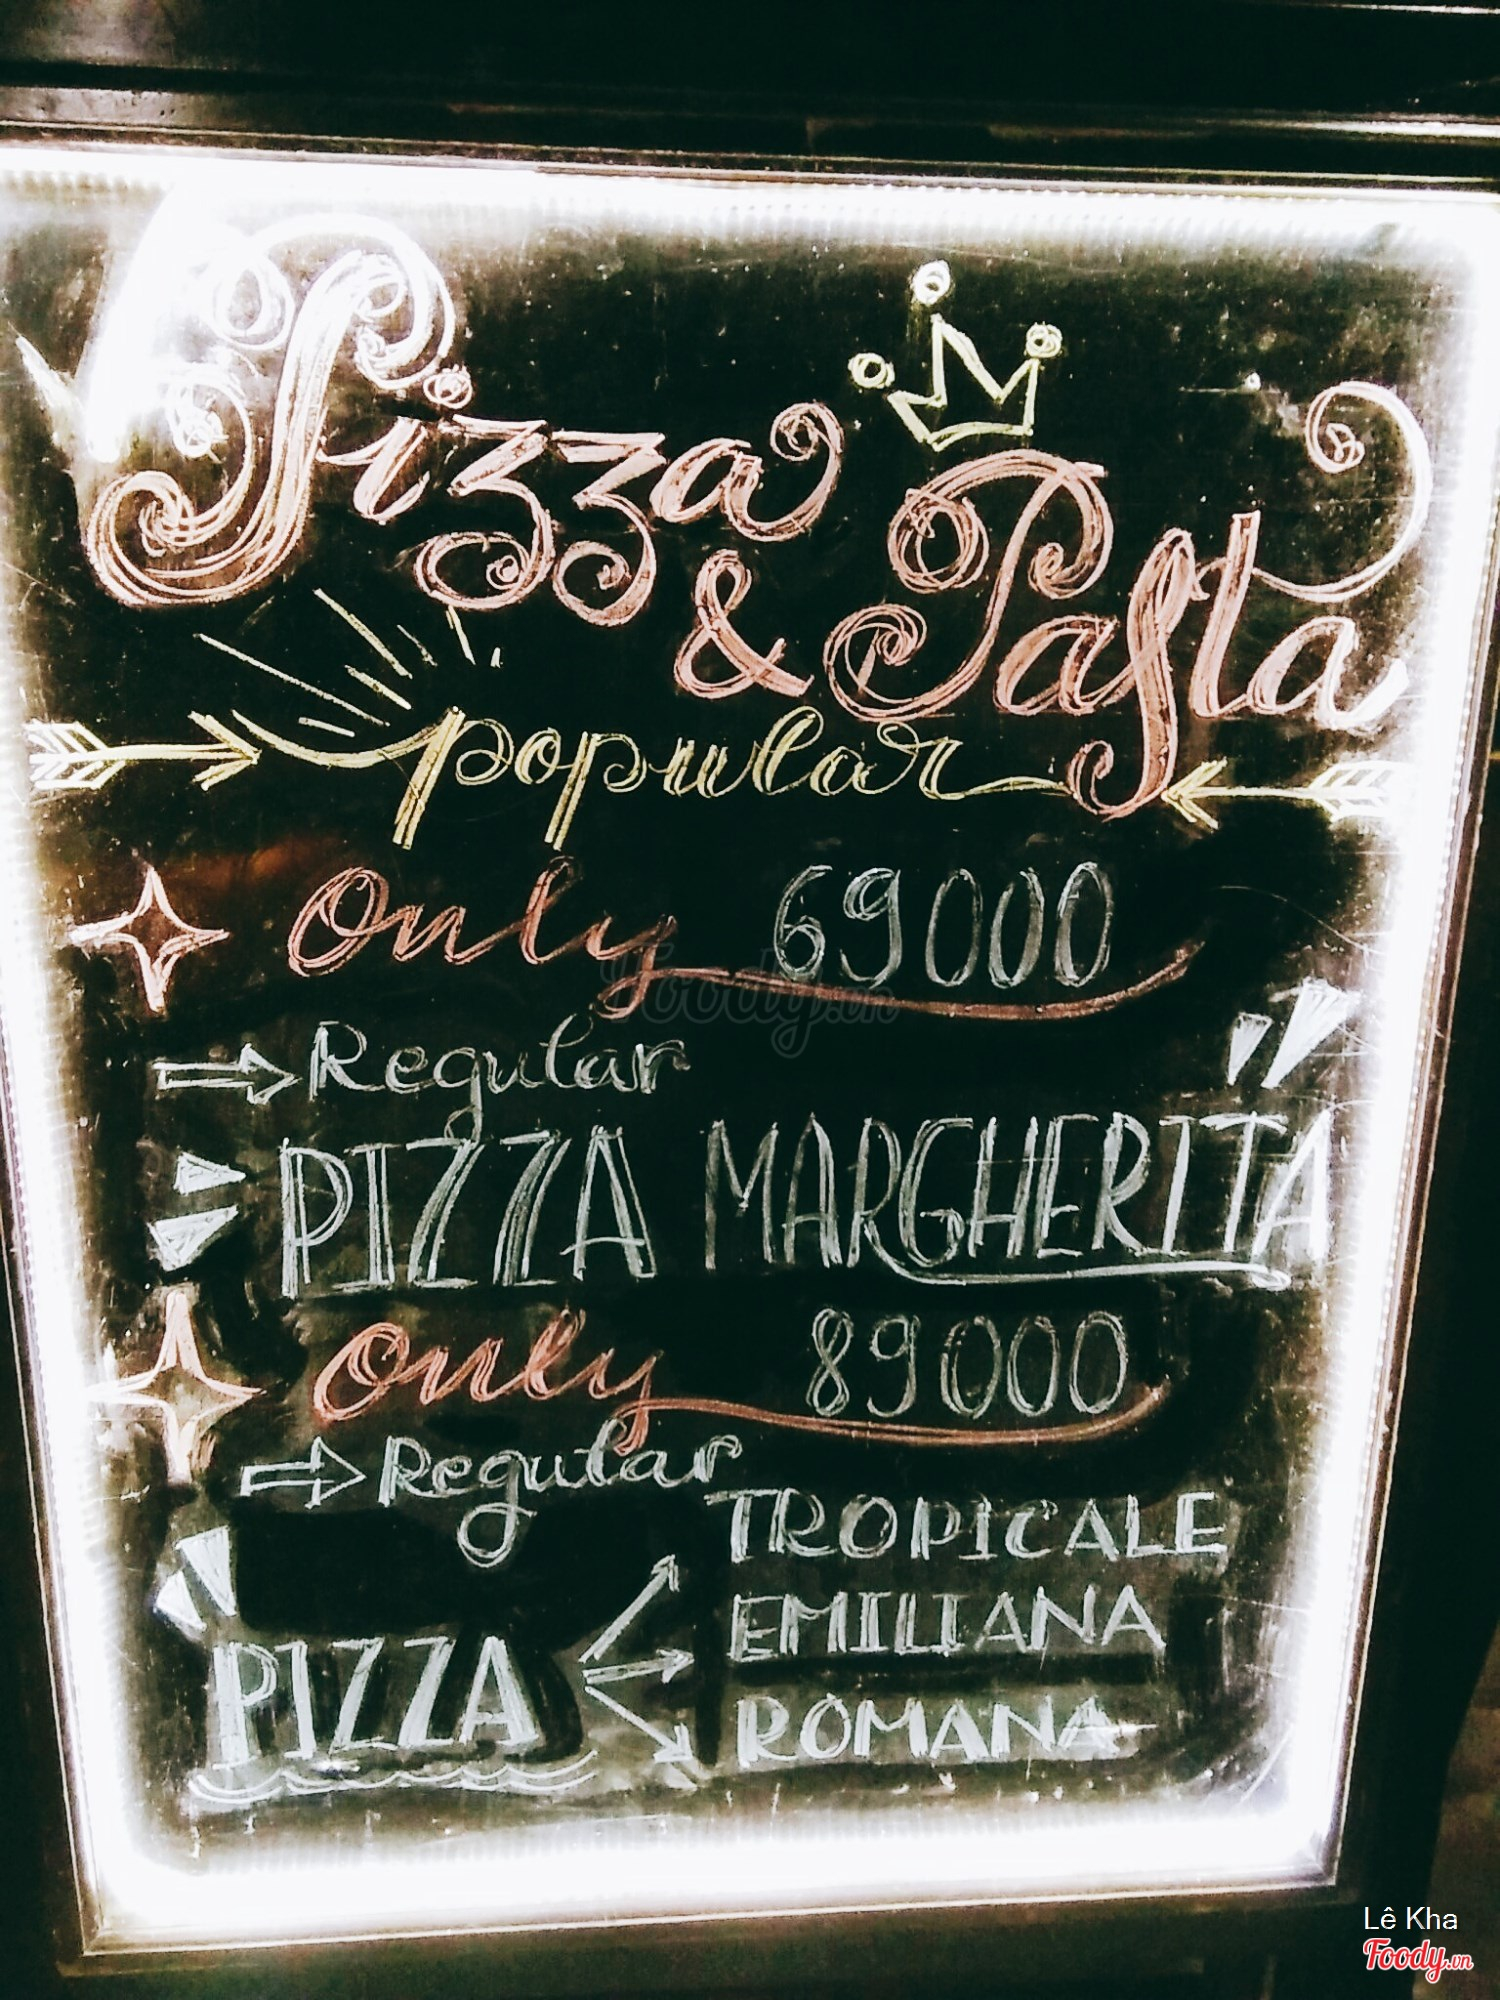 Pizza
& Pasta
popular
Only 69000
Regular
PIZZA MARGHERITA
Only 89000
Regular
PIZZA
TROPICALE
EMILIANA
ROMANA
Foody.vn
Lê Kha
Foody.vn